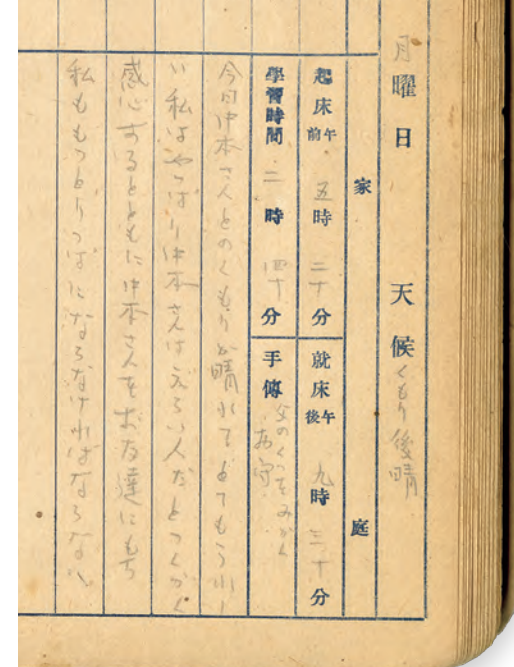 月曜日 天候 くもり後晴
家庭
起床 午前 五時 二十分 就床 午後 九時 三十分
學習時間 二時 四十分 手傳 父のくつをみがく
お守
今日中本さんとのくもりが晴れてとてもうれし
い 私はやっぱり中本さんはえらい人だとつくづく
感心するとともに中本さんをお友達にもち
私ももっとりっぱにならなければならない